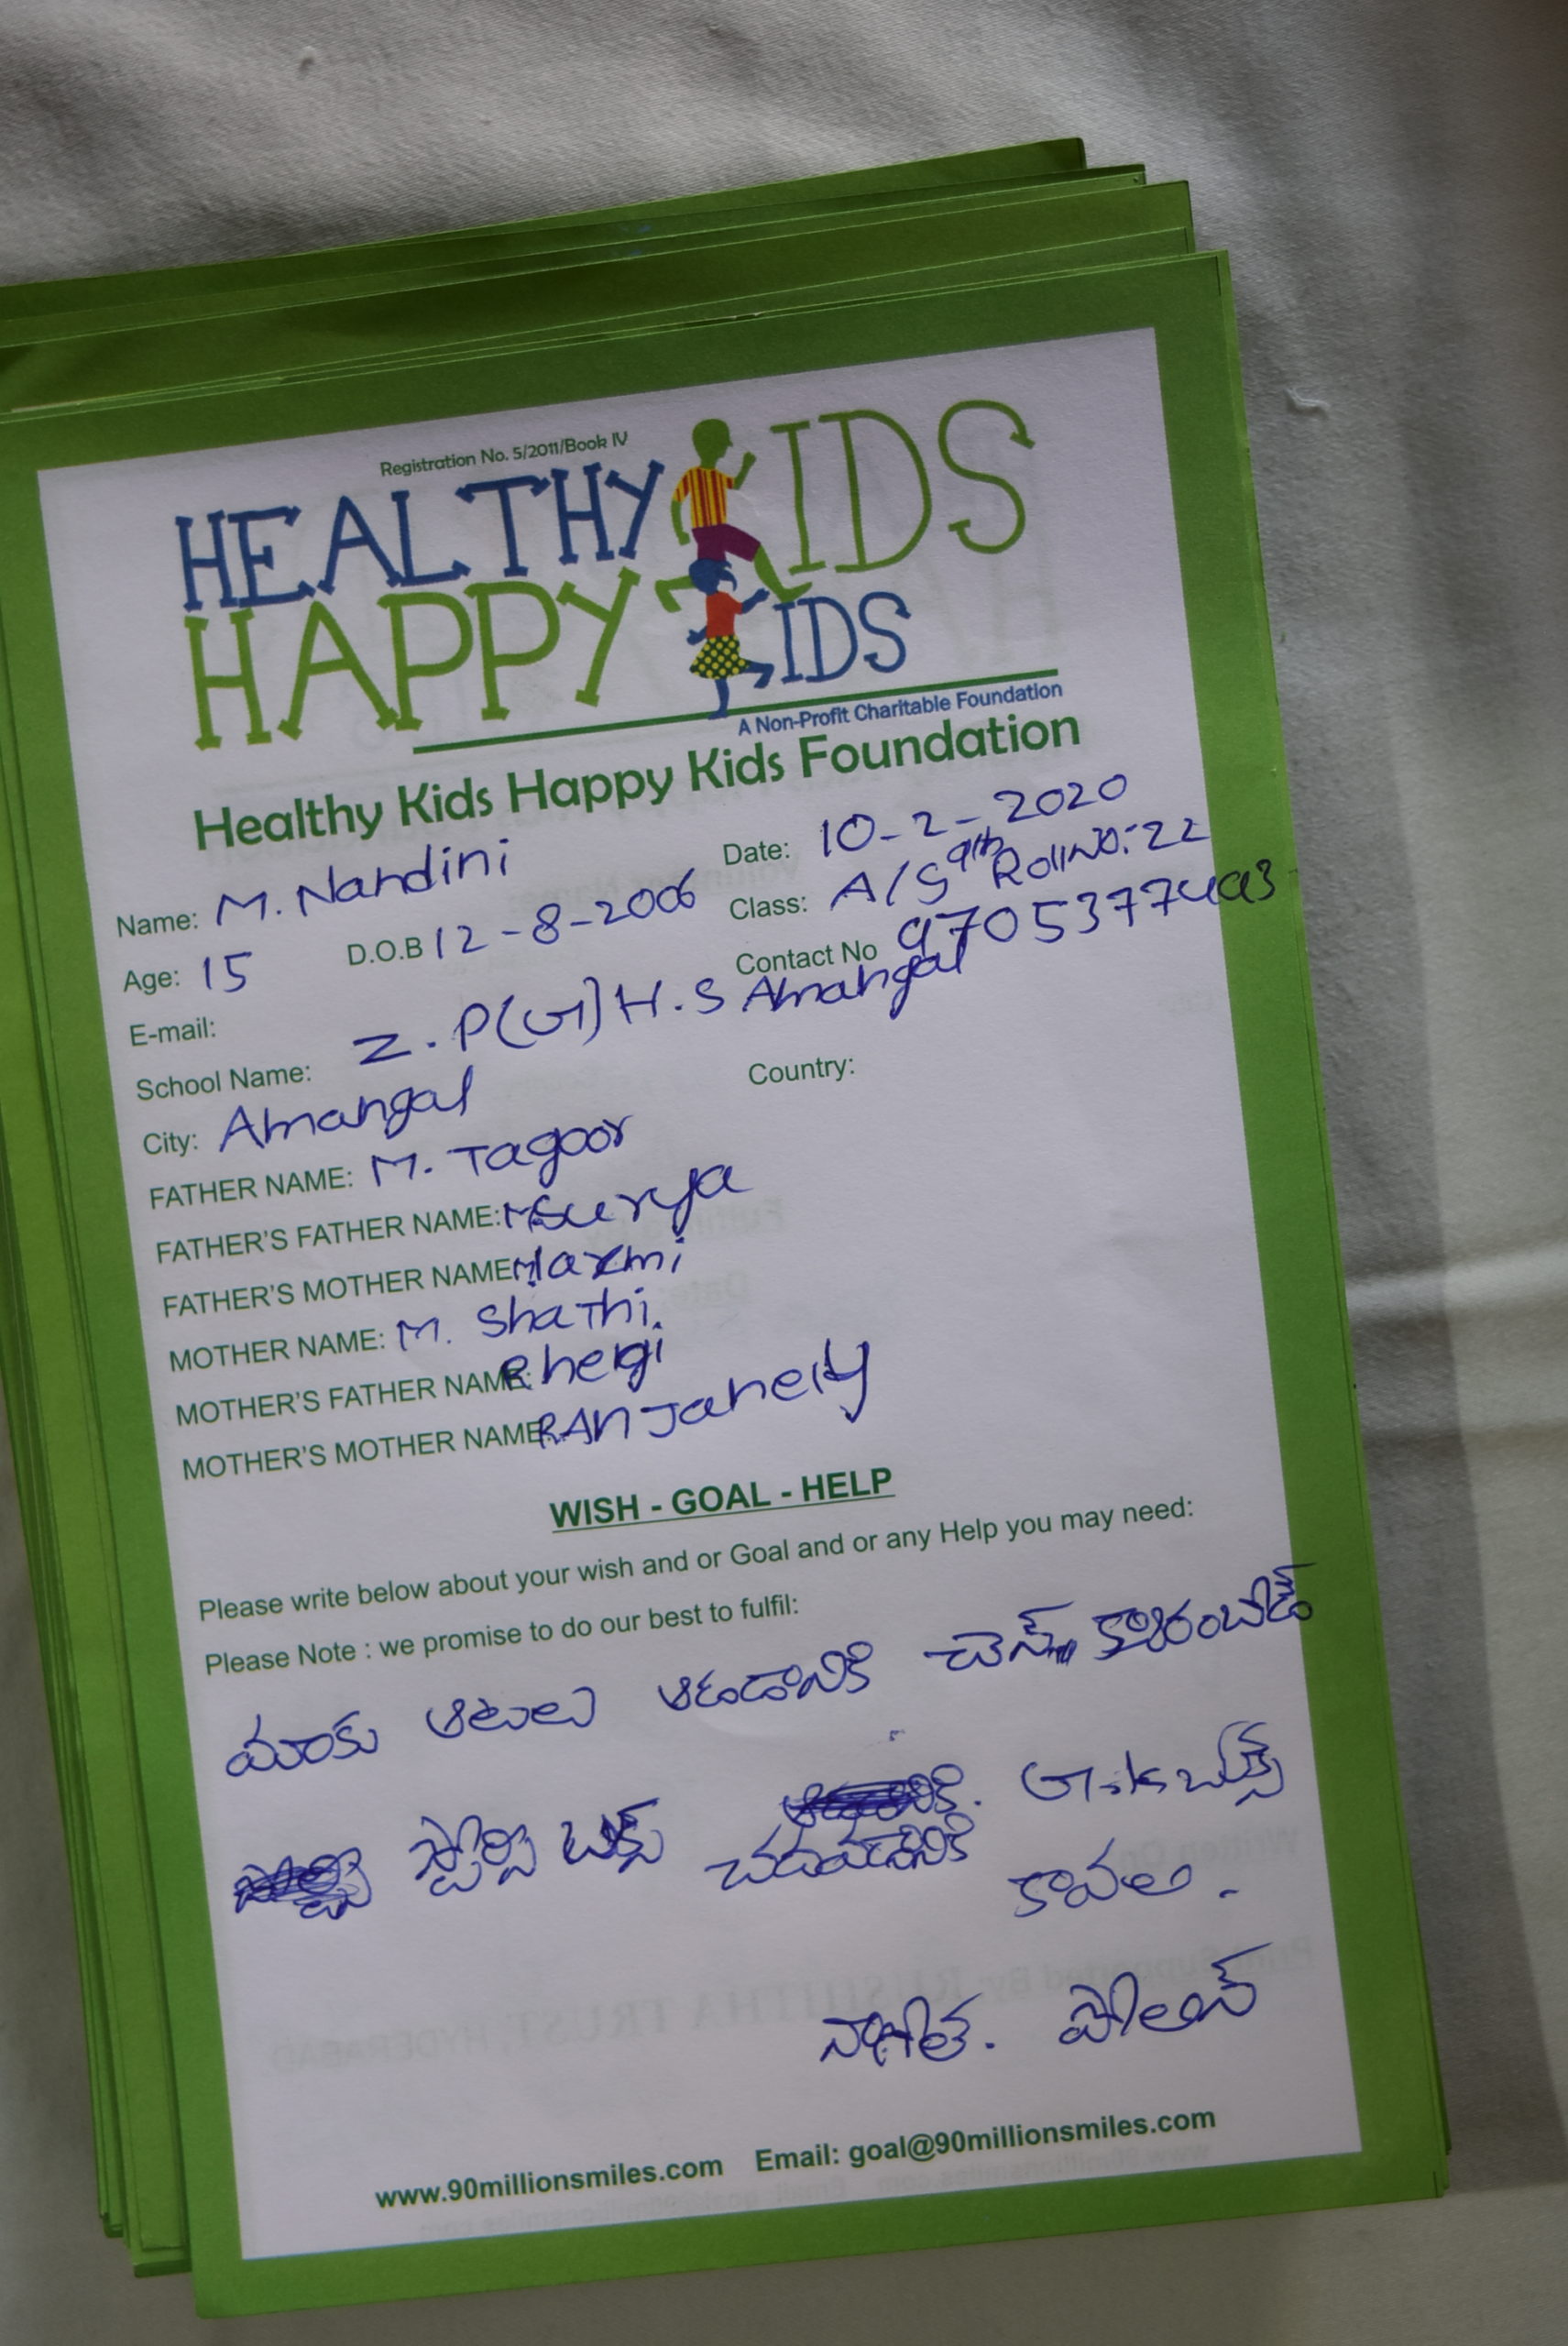 Registration No. 5/2011/Book IV
HEALTHY KIDS
HAPPY KIDS
A Non-Profit Charitable Foundation
Healthy Kids Happy Kids Foundation
Name: M. Nandini Date: 10-2-2020
Age: 15 D.O.B 12-8-2006 Class: A/S 9th Roll NO: 22
E-mail: Contact No 9705377493
School Name: Z.P(G)H.S Amangal
City: Amangal Country:
FATHER NAME: M. Tagoor
FATHER'S FATHER NAME: M surya
FATHER'S MOTHER NAME: M laxmi
MOTHER NAME: M. Shathi
MOTHER'S FATHER NAME:
MOTHER'S MOTHER NAME:
WISH - GOAL - HELP
Please write below about your wish and or Goal and or any Help you may need:
Please Note : we promise to do our best to fulfil:
మాకు ఆటలు ఆడడానికి చెస్ క్యారంబోడ్
స్పోర్ట్స బుక్స్ చదువడానికి G.k బుక్స్
కావలి.
పోలీస్
www.90millionsmiles.com Email: goal@90millionsmiles.com